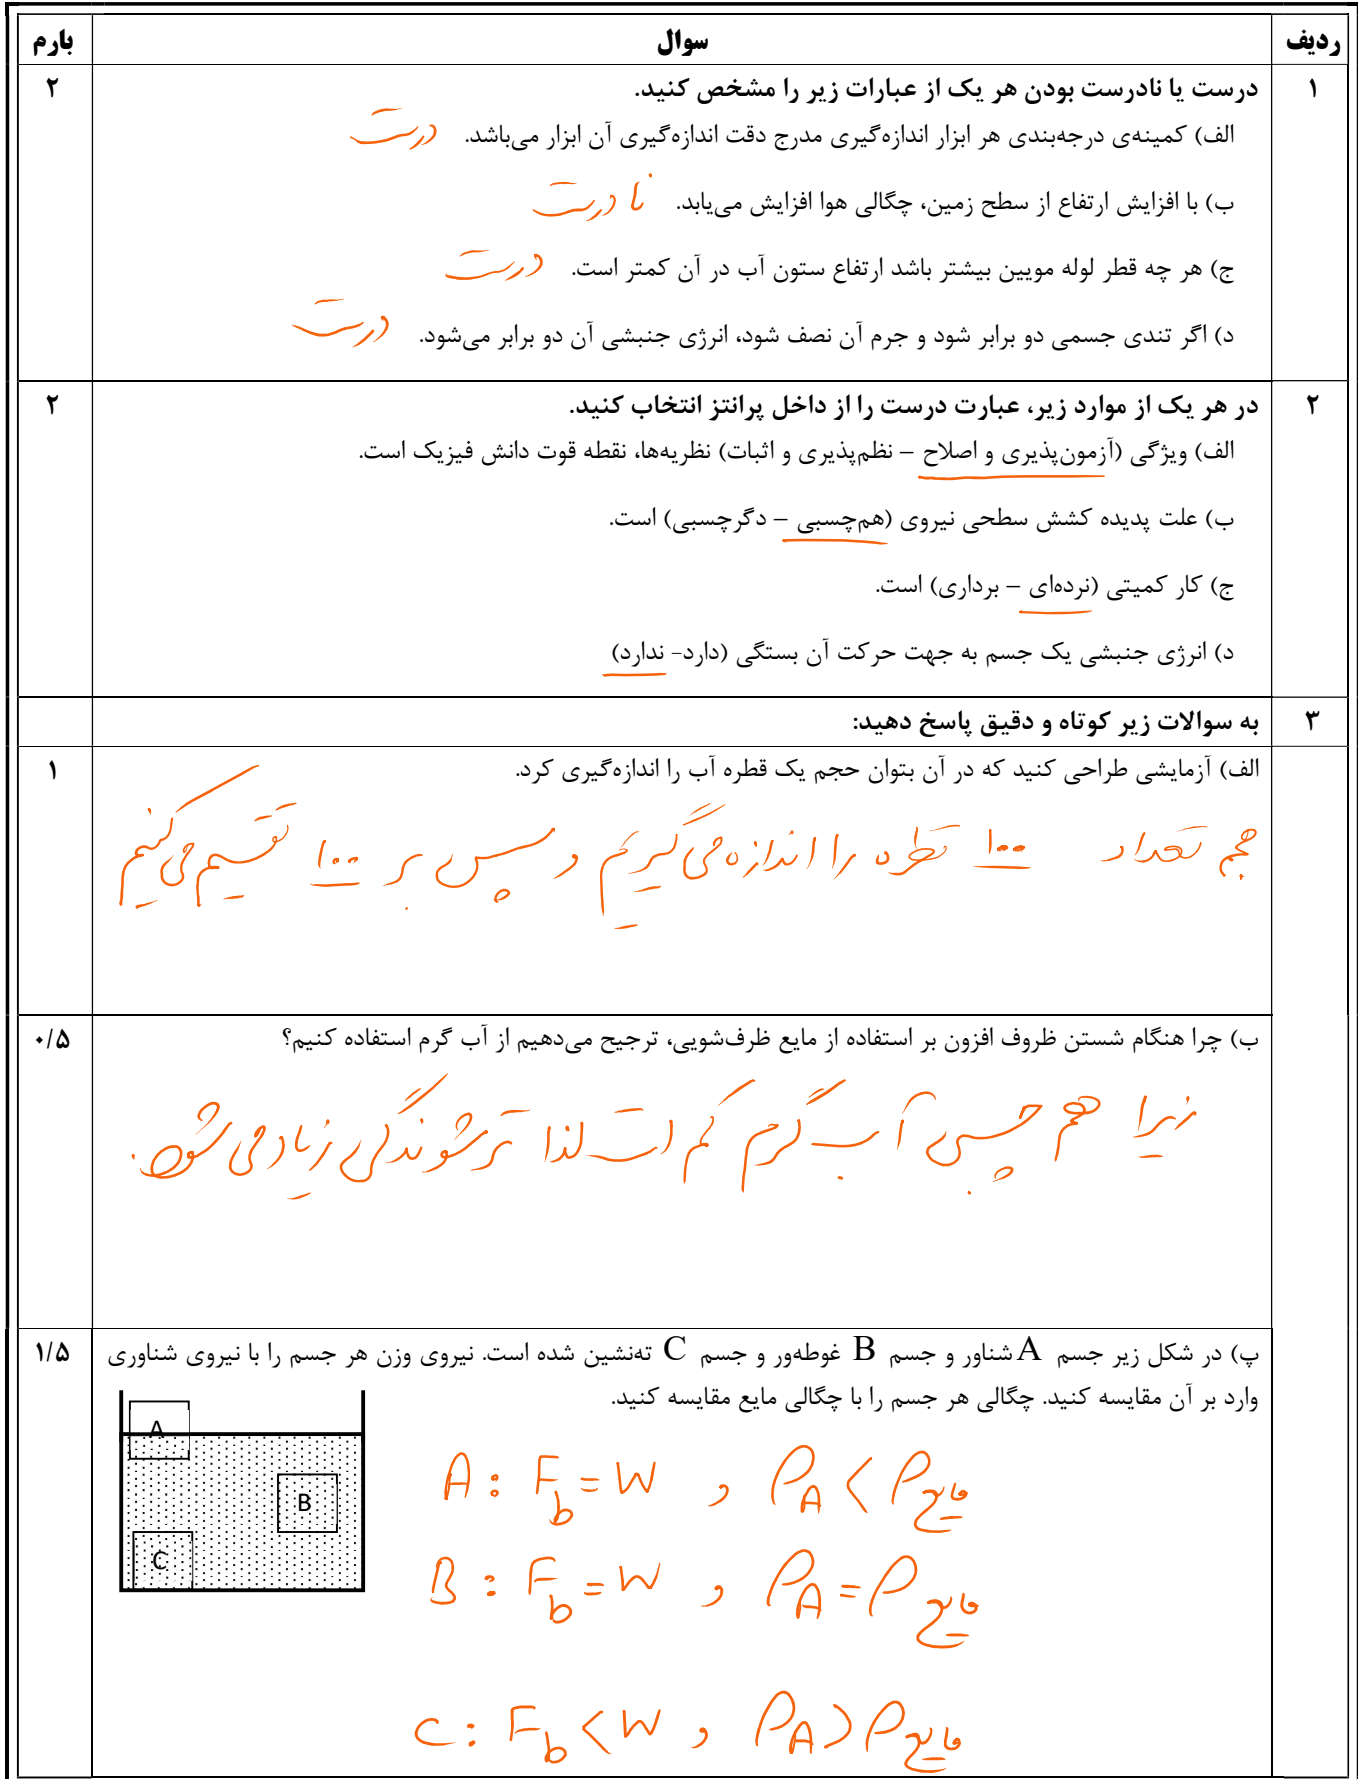 ردیف سوال بارم
۱ درست یا نادرست بودن هر یک از عبارات زیر را مشخص کنید. ۲
الف) کمینه‌ی درجه‌بندی هر ابزار اندازه‌گیری مدرج دقت اندازه‌گیری آن ابزار می‌باشد. درست
ب) با افزایش ارتفاع از سطح زمین، چگالی هوا افزایش می‌یابد. نادرست
ج) هر چه قطر لوله مویین بیشتر باشد ارتفاع ستون آب در آن کمتر است. درست
د) اگر تندی جسمی دو برابر شود و جرم آن نصف شود، انرژی جنبشی آن دو برابر می‌شود. درست
۲ در هر یک از موارد زیر، عبارت درست را از داخل پرانتز انتخاب کنید. ۲
الف) ویژگی (آزمون‌پذیری و اصلاح – نظم‌پذیری و اثبات) نظریه‌ها، نقطه قوت دانش فیزیک است.
ب) علت پدیده کشش سطحی نیروی (هم‌چسبی – دگرچسبی) است.
ج) کار کمیتی (نرده‌ای – برداری) است.
د) انرژی جنبشی یک جسم به جهت حرکت آن بستگی (دارد- ندارد)
۳ به سوالات زیر کوتاه و دقیق پاسخ دهید:
الف) آزمایشی طراحی کنید که در آن بتوان حجم یک قطره آب را اندازه‌گیری کرد. ۱
حجم تعداد ۱۰۰ قطره را اندازه می‌گیریم و سپس بر ۱۰۰ تقسیم می‌کنیم
ب) چرا هنگام شستن ظروف افزون بر استفاده از مایع ظرف‌شویی، ترجیح می‌دهیم از آب گرم استفاده کنیم؟ ۰/۵
زیرا هم چسبی آب گرم کم است لذا ترشوندگی زیاد می شود.
پ) در شکل زیر جسم A شناور و جسم B غوطه‌ور و جسم C ته‌نشین شده است. نیروی وزن هر جسم را با نیروی شناوری ۱/۵
وارد بر آن مقایسه کنید. چگالی هر جسم را با چگالی مایع مقایسه کنید.
A
B
C
A : F_b = W , ρ_A < ρ_مایع
B : F_b = W , ρ_A = ρ_مایع
C : F_b < W , ρ_A > ρ_مایع